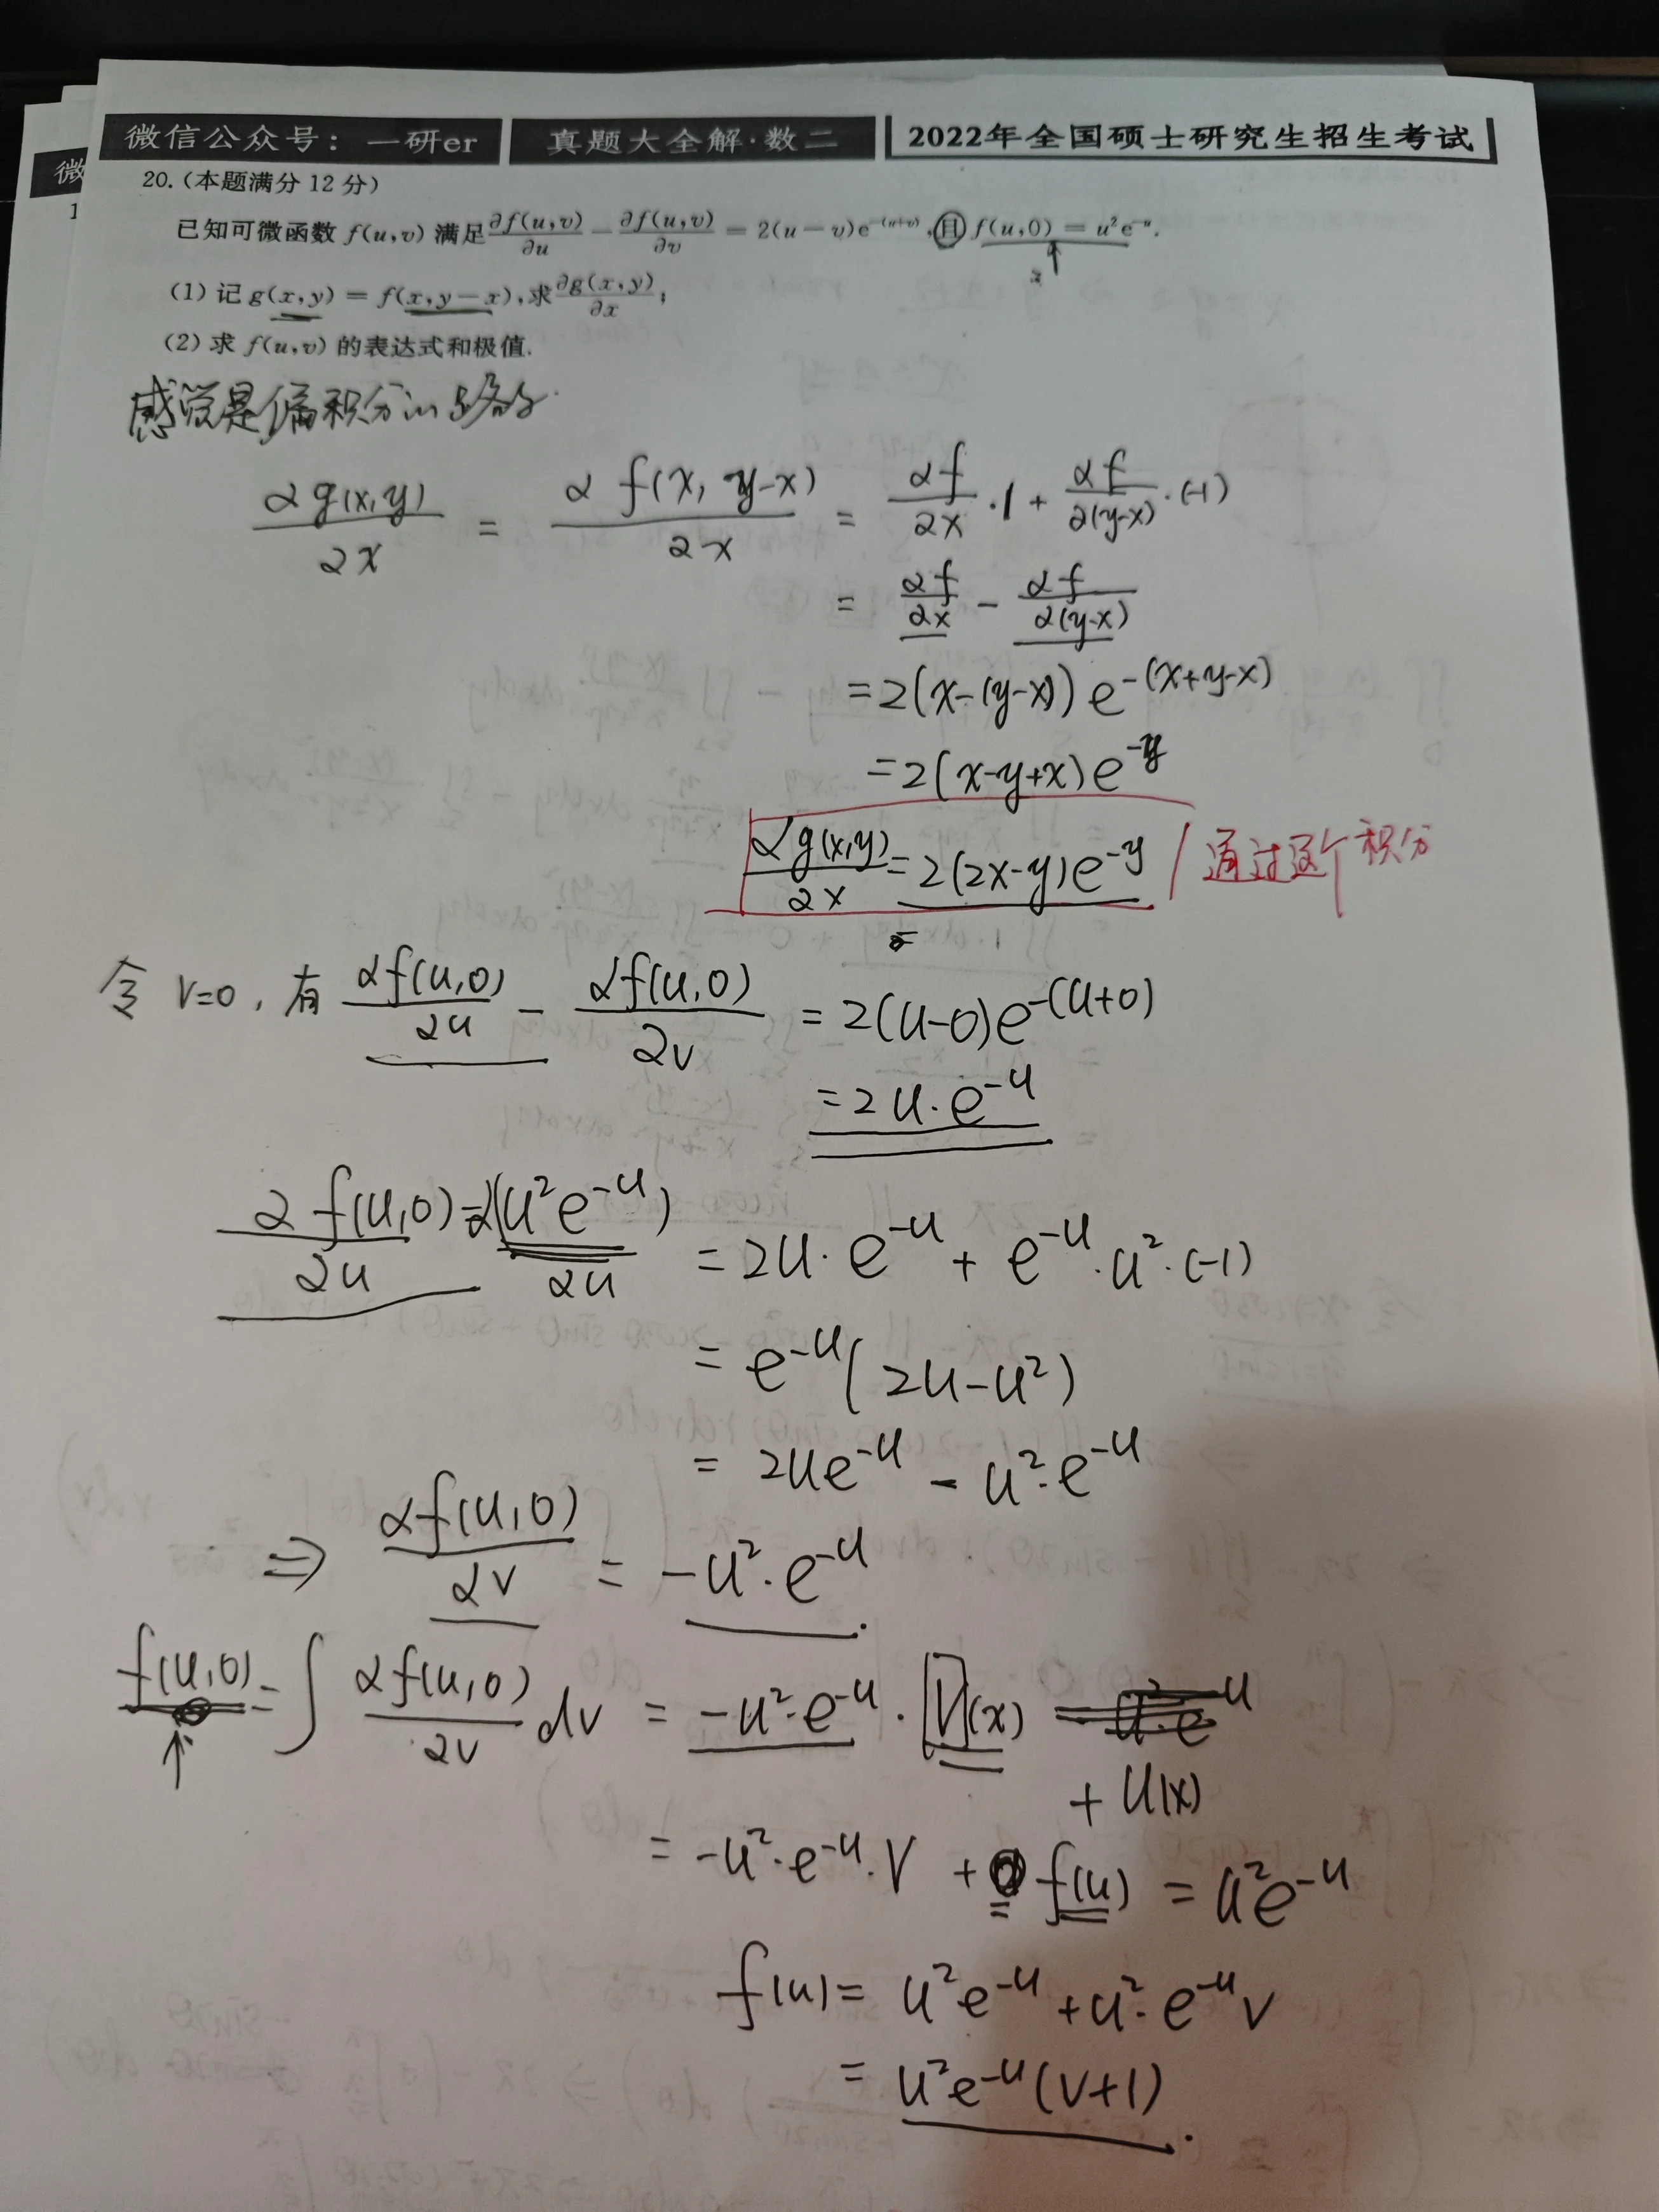 微信公众号：一研er 真题大全解·数二 2022年全国硕士研究生招生考试
微
1
20.(本题满分12分)
已知可微函数 f(u,v) 满足 ∂f(u,v)/∂u − ∂f(u,v)/∂v = 2(u−v)e^{−(u+v)}, 且 f(u,0) = u²e^{−u}.
(1) 记 g(x,y) = f(x,y−x), 求 ∂g(x,y)/∂x;
(2) 求 f(u,v) 的表达式和极值.
感觉是偏积分的
∂g(x,y)/∂x = ∂f(x, y-x)/∂x = ∂f/∂x ·1 + ∂f/∂(y-x) ·(-1)
= ∂f/∂x - ∂f/∂(y-x)
= 2(x-(y-x)) e^{-(x+y-x)}
= 2(x-y+x)e^{-y}
∂g(x,y)/∂x = 2(2x-y)e^{-y} / 通过这个积分
=
令 v=0, 有 ∂f(u,0)/∂u - ∂f(u,0)/∂v = 2(u-0)e^{-(u+0)}
= 2u·e^{-u}
∂f(u,0)/∂u = ∂(u²e^{-u})/∂u = 2u·e^{-u} + e^{-u}·u²·(-1)
= e^{-u}(2u-u²)
= 2ue^{-u} - u²·e^{-u}
⇒ ∂f(u,0)/∂v = -u²·e^{-u}.
f(u,0) = ∫ ∂f(u,0)/∂v dv = -u²·e^{-u} · V(x)
+ u(x)
= -u²·e^{-u}·v + f(u) = u²e^{-u}
f(u) = u²e^{-u} + u²·e^{-u}v
= u²e^{-u}(v+1).